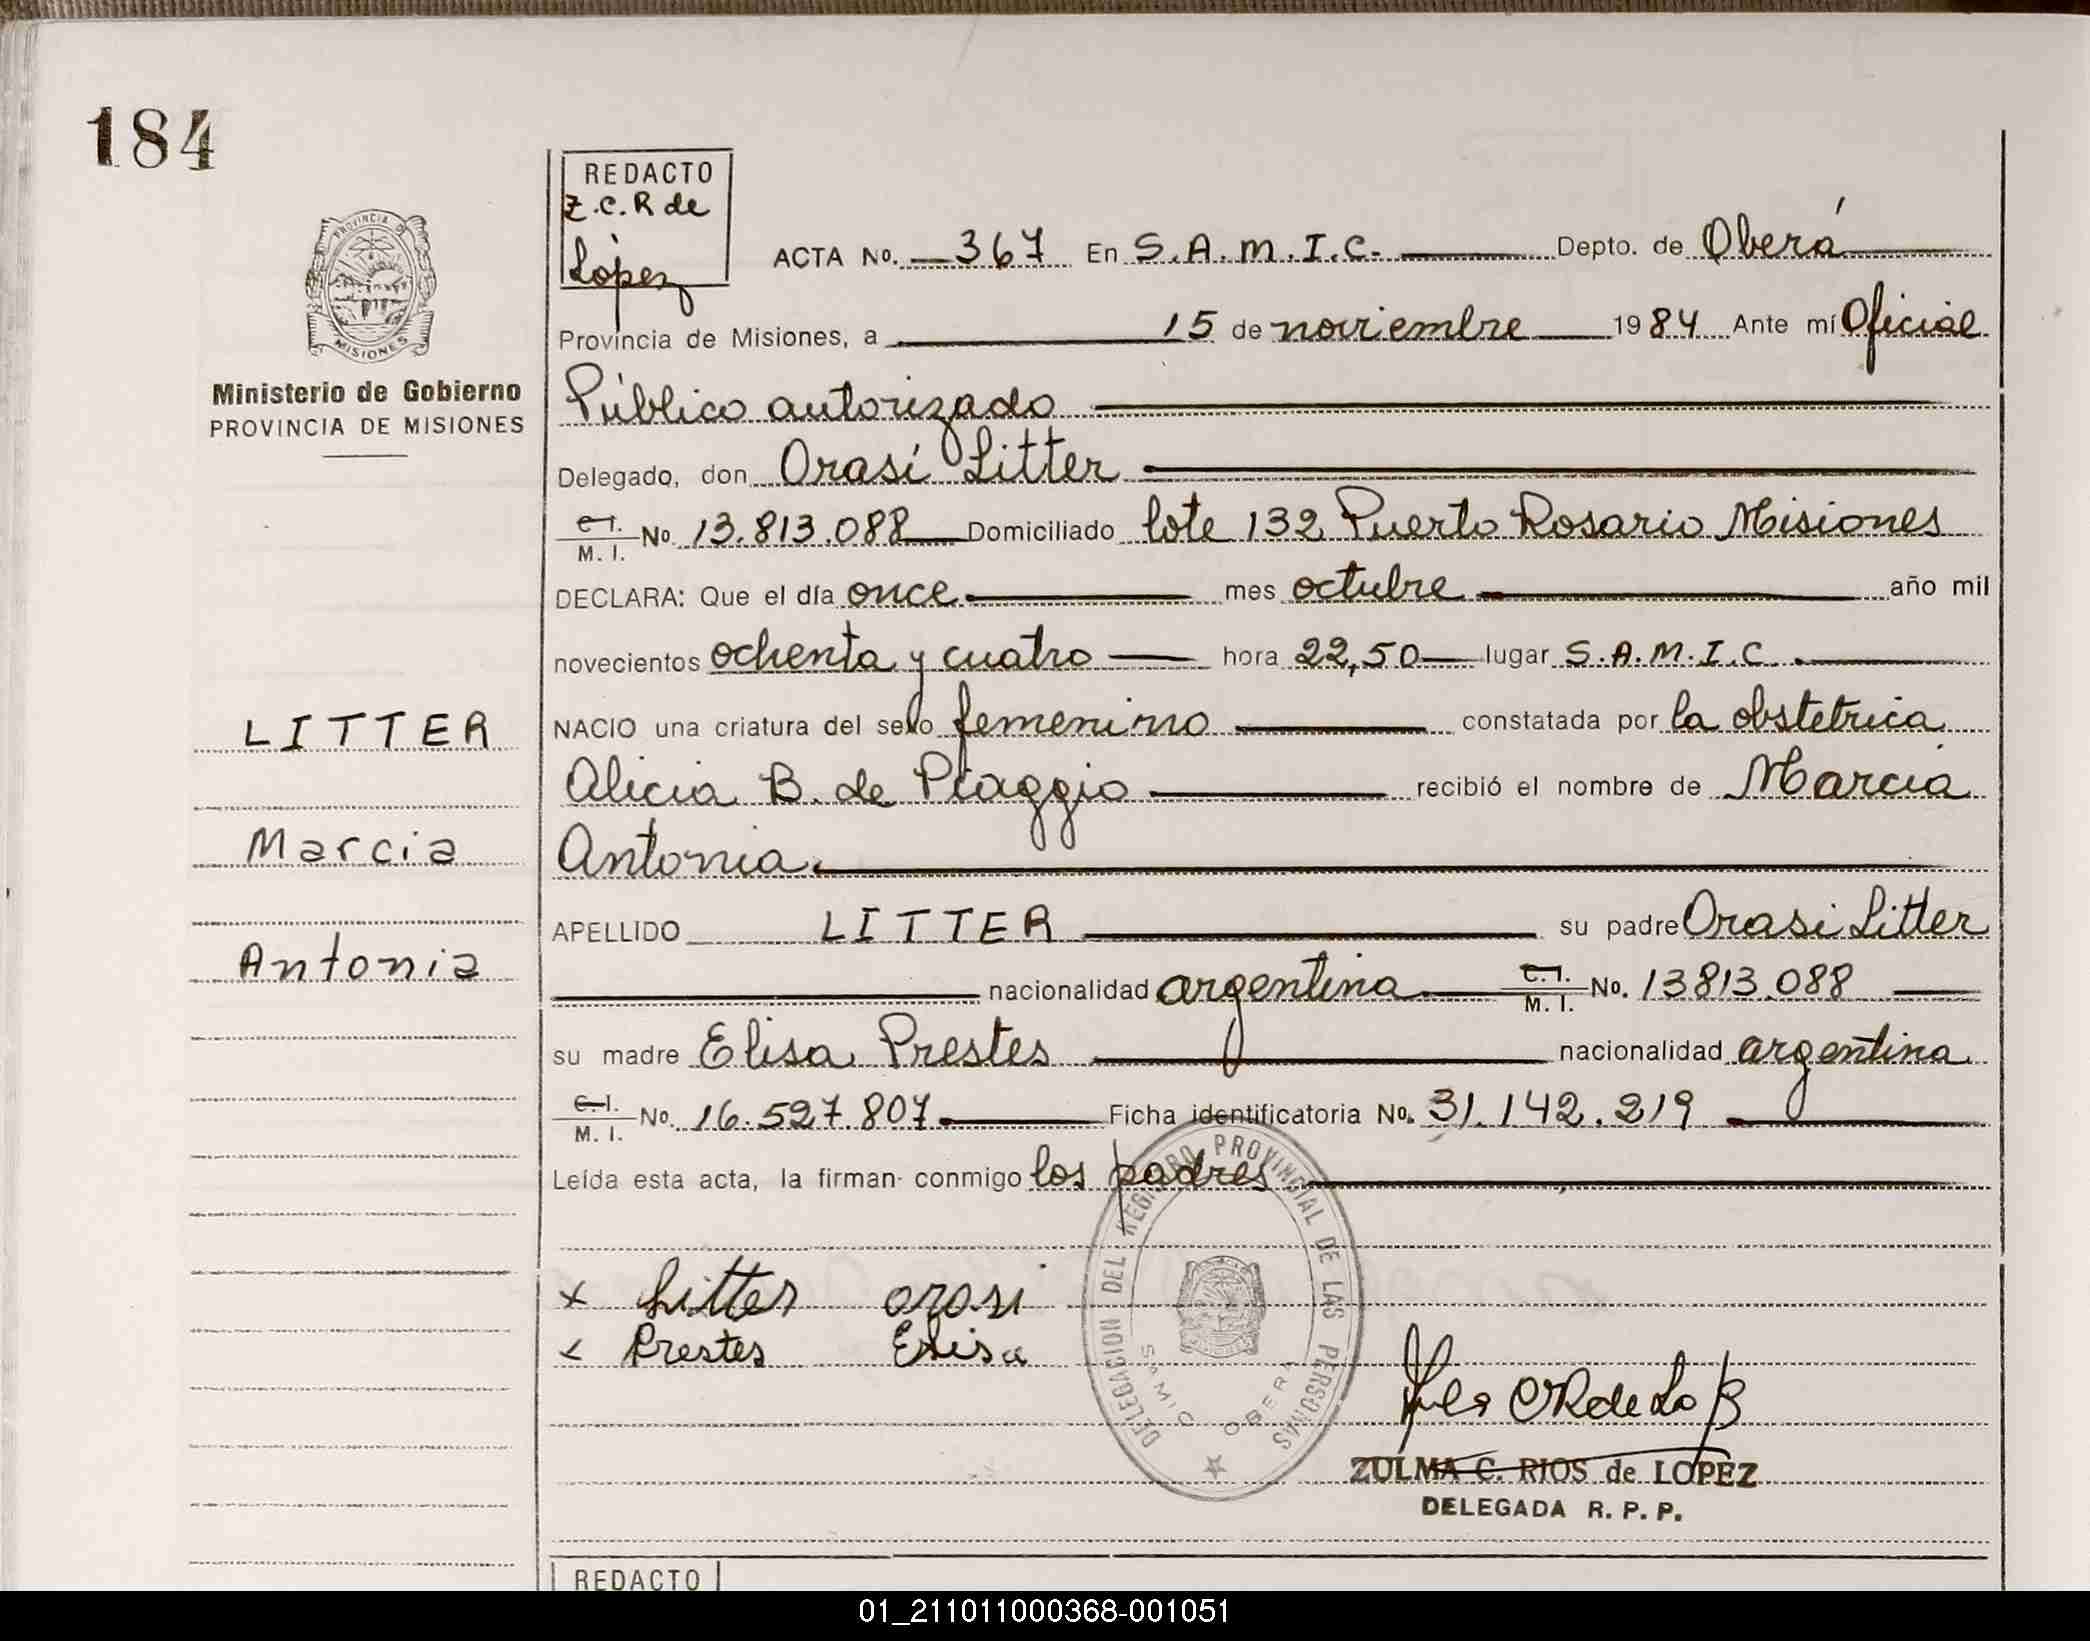 184
REDACTO
Z.C.R de
López
PROVINCIA DE
MISIONES
Ministerio de Gobierno
PROVINCIA DE MISIONES
ACTA No. 367 En S.A.M.I.C. Depto. de Oberá
Provincia de Misiones, a 15 de noviembre 1984 Ante mí Oficial
Público autorizado
Delegado, don Orasí Litter
C.I. / M.I. No. 13.813.088 Domiciliado lote 132 Puerto Rosario Misiones
DECLARA: Que el día once mes octubre año mil
novecientos ochenta y cuatro hora 22,50 lugar S.A.M.I.C.
NACIO una criatura del sexo femenino constatada por la obstetrica
Alicia B. de Piaggio recibió el nombre de Marcia
Antonia.
LITTER
Marcia
Antonia
APELLIDO LITTER su padre Orasi Litter
nacionalidad argentina C.I. / M.I. No. 13813.088
su madre Elisa Prestes nacionalidad argentina
C.I. / M.I. No. 16.527.807 Ficha identificatoria No. 31.142.219
Leída esta acta, la firman conmigo los padres
x Litter orasi
x Prestes Elisa
DELEGACION DEL REGISTRO PROVINCIAL DE LAS PERSONAS
SAMIC OBERA
ZULMA C. RIOS de LOPEZ
DELEGADA R. P. P.
REDACTO
01_211011000368-001051